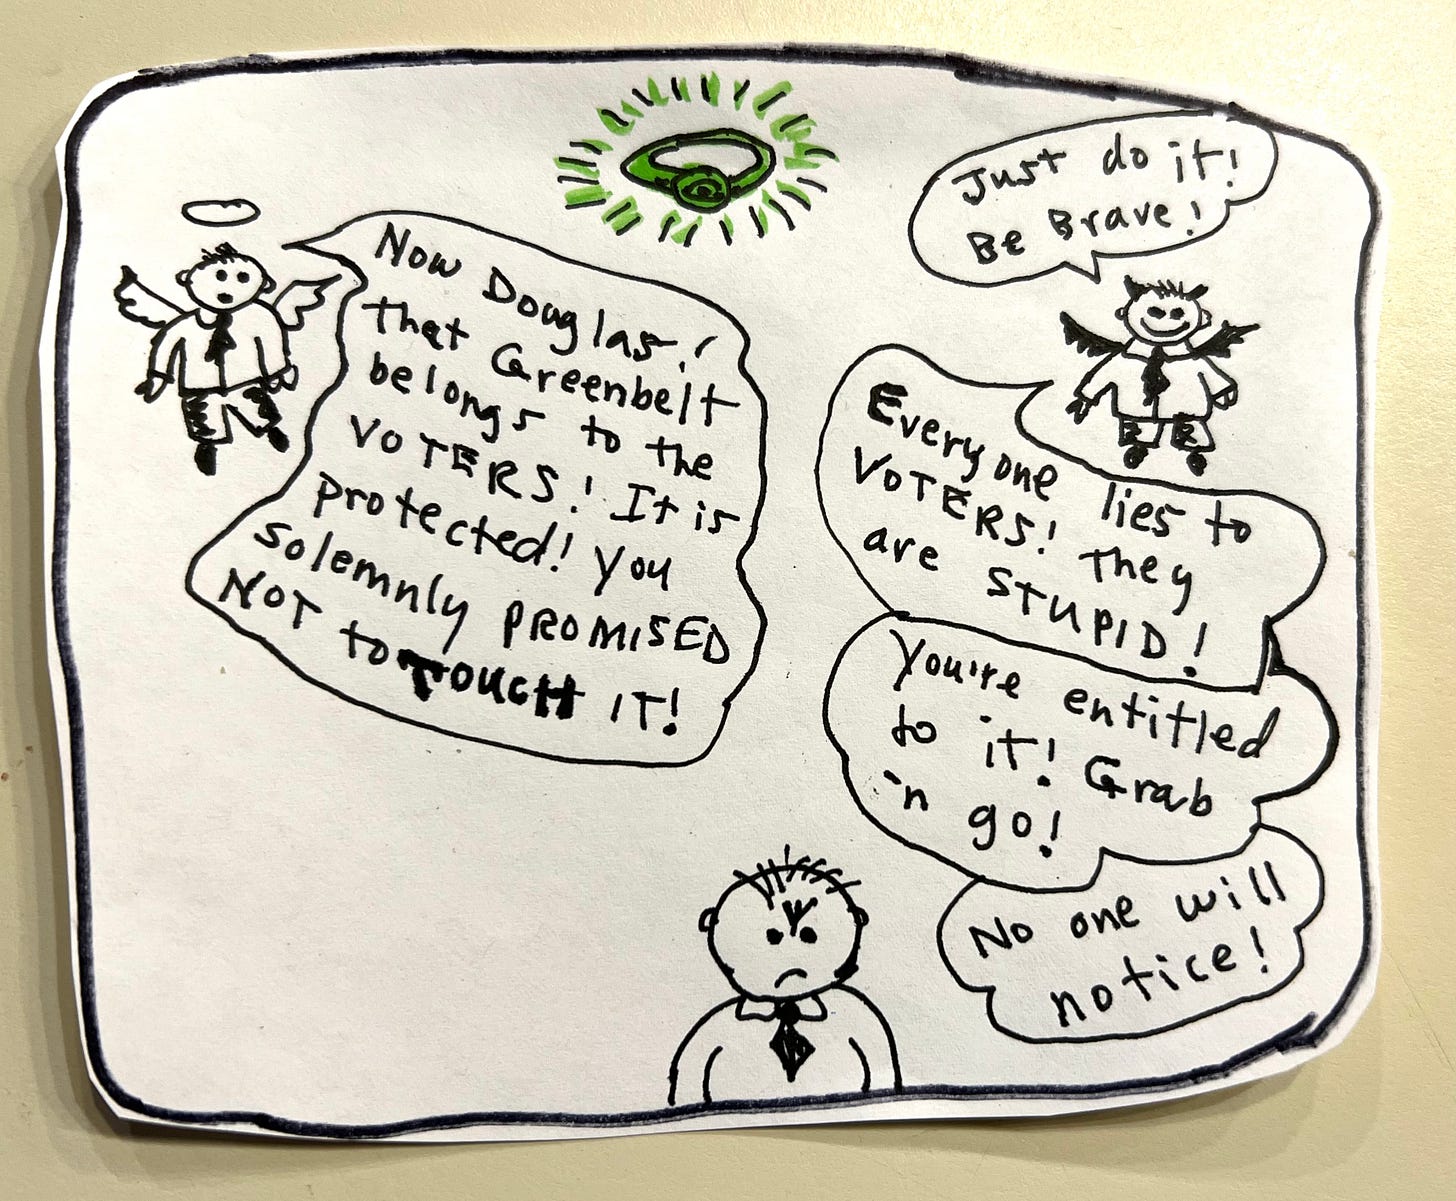 Now Douglas!
that Greenbelt
belongs to the
VOTERS! It is
protected! you
solemnly PROMISED
NOT to TOUCH IT!
Just do it!
Be Brave!
Everyone lies to
VOTERS! They
are STUPID!
You're entitled
to it! Grab
'n go!
No one will
notice!